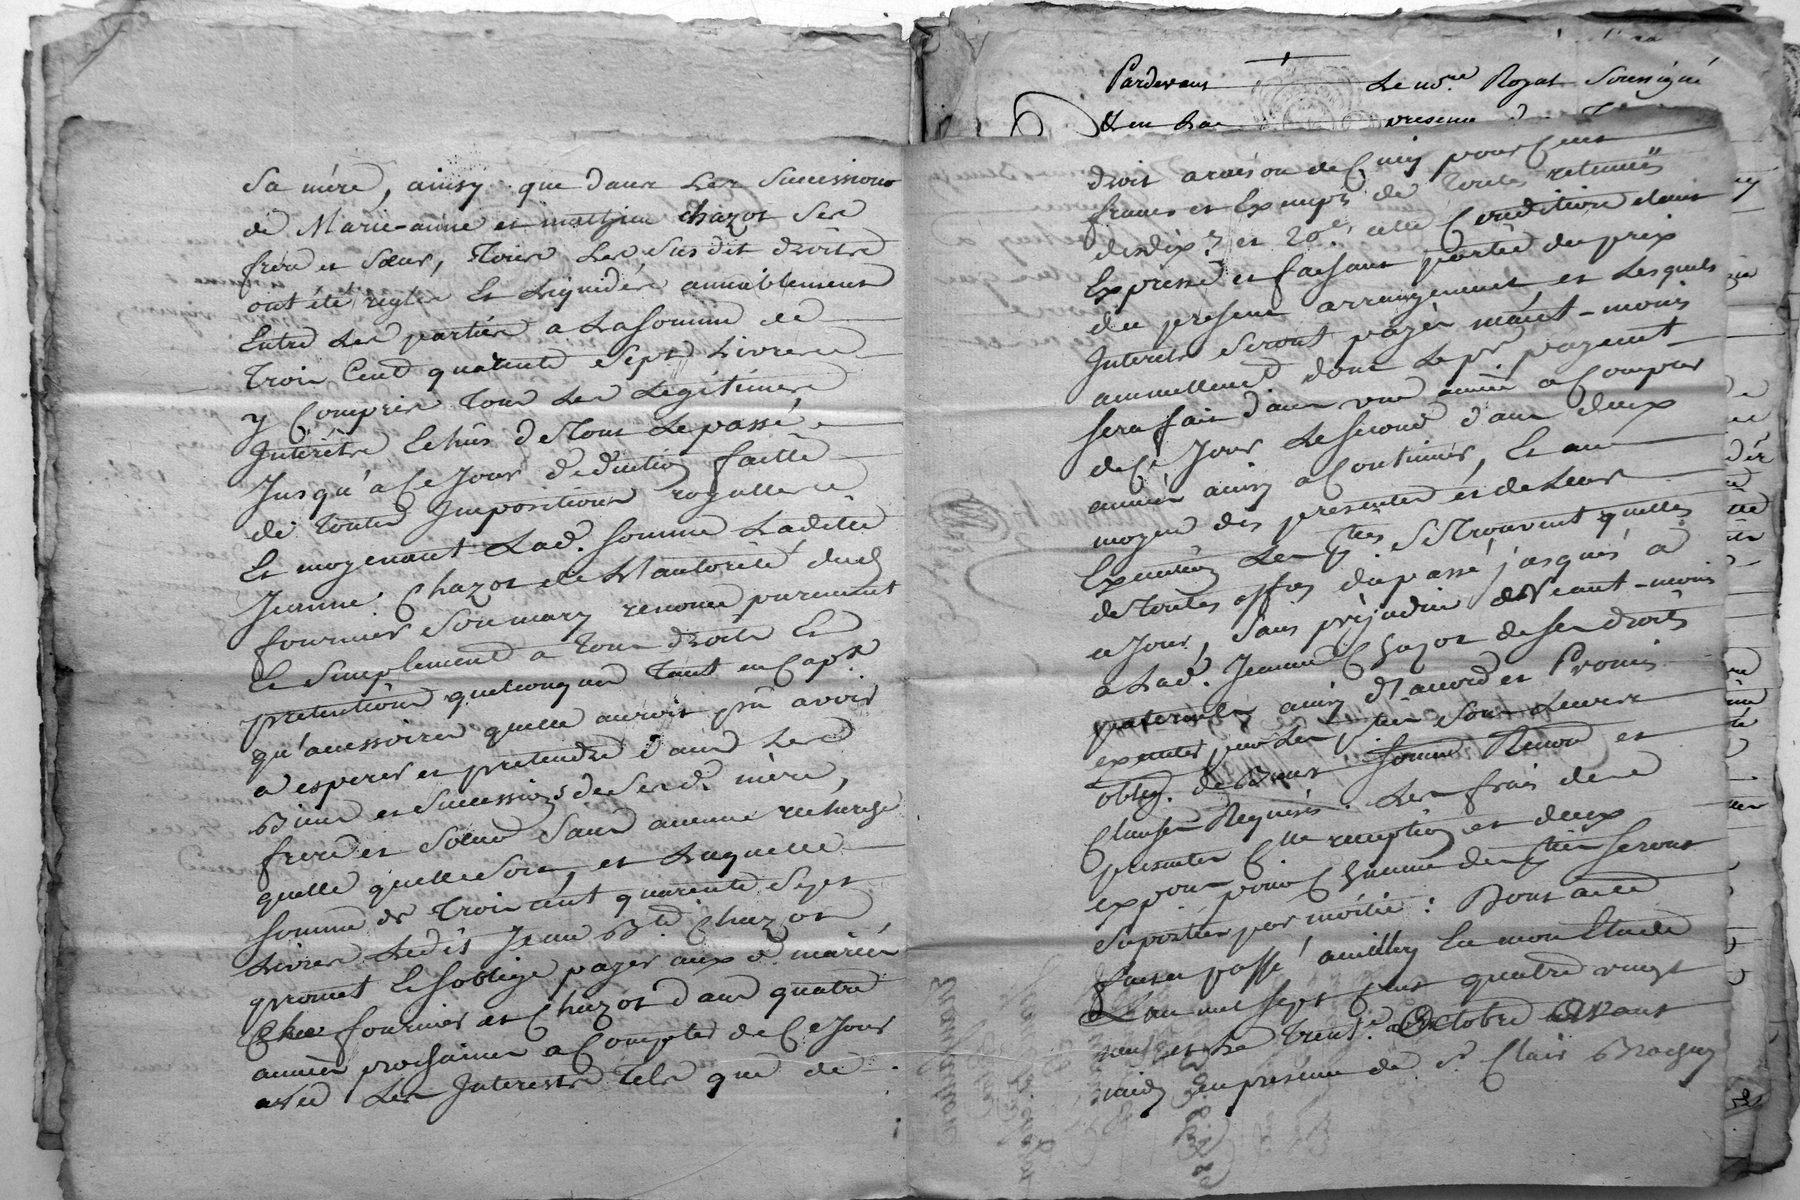 Sa mére, ainsy que dans Les Successions
de Marie-anne et mathieu chazot Ses
frere et Sœur, Tous Les Susdit droits
ont été reglés Et Liquidés amiablement
Entre Les parties a La Somme de
Trois Cent quarente Sept Livres
y Compris Tous Les Legitimes,
Interêts Echûs de Tout Le passé
Jusqu'à Ce Jour deduction faitte
de Toutes Impositions royalles
Et moyenant Lad. Somme Laditte
Jeanne Chazot de L'autorité dud
fournier Son mary renonce purement
Et Simplement a Tous droits Et
pretentions quelconques Tant en Capl.
qu'accessoires quelle auroit pû avoir
a esperer et pretendre dans Les
Biens et Successions de Sesd. mère,
frere et Sœur Sans aucune recherge
quelle quelle Soit, et Laquelle
Somme de Trois cent quarente Sept
Livres Ledit Jean Bte. Chazot
promet Et Soblige payer aux d. mariés
fournier et Chazot dans quatre
années prochaines a Compter de Ce Jour
avec Les Interests tels que de
Pardevant Le nore. Royal Soussigné
droit a raison de Cinq pour Cent
francs et Exempts de Toutes retenues
des dixes. et 20es. cette Condition etant
Expresse et faisant partie du prix
du present arrangement et Lesquels
Interets Seront payés néant-moins
annuellement dont Le pr. payement
Sera fait dans une année a Compter
de Ce Jour Le Second dans deux
années ainsy a Continuer, Et au
moyen des presentes et de Leur
Execution Les pties. Se Trouvent quittes
de Toutes affres du passé jusques à
ce Jour, Sans préjudice Néant-moins
a Lad. Jeanne Chazot de Ses droits
paternels ainsy D'accord et Promis
executer par Les pties Sous Leurs
oblig. de Biens Soumis Renonc et
Clauses Requises. Les frais de
presentes reception et deux
expon. pour Chacune des pties Seront
Suportés par moitié: Dont acte
fait et passé a milly En mon Etude
L'an mil Sept Cent quatre vingt
neuf et Le Trente. Octobre Avant
midy en presence de Sr. Clair